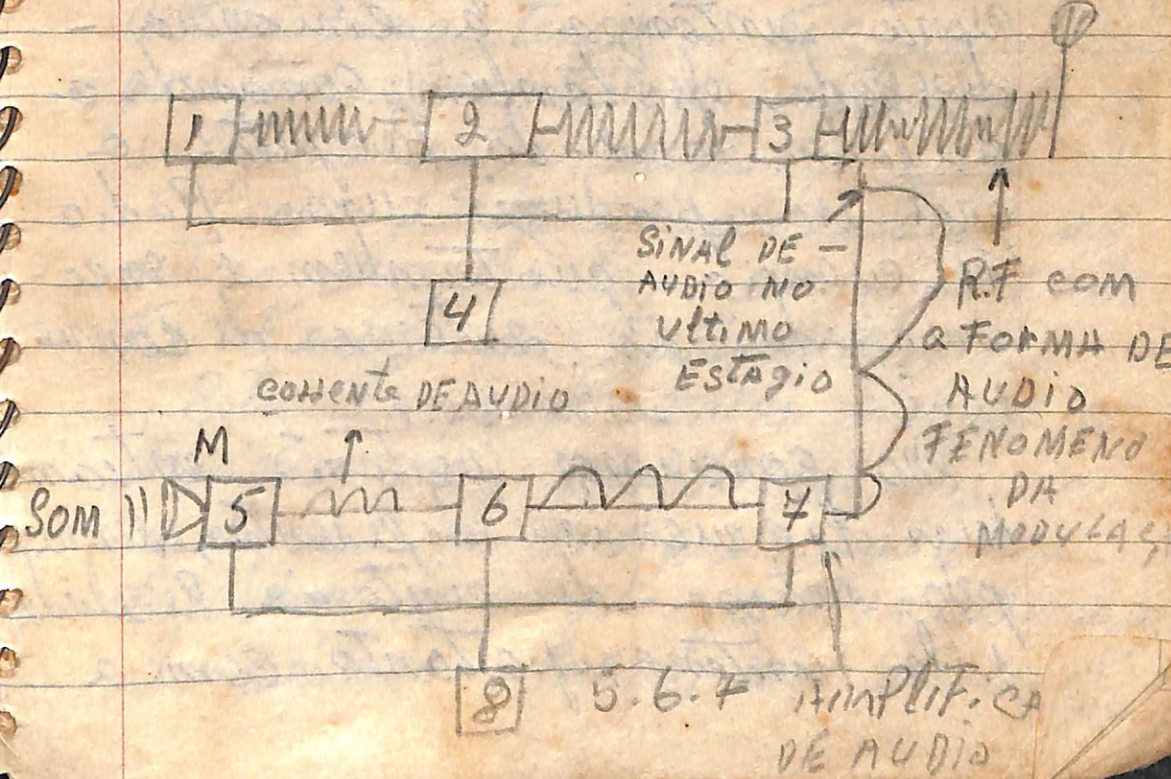 1 2 3
SINAL DE -
AUDIO NO
ULTIMO
ESTÁGIO
R.F COM
a FORMA DE
AUDIO
FENOMENO
DA
4
corrente DE AUDIO
M
SOM 5 6 7
8 5.6.7 AMPLIFICA
DE AUDIO